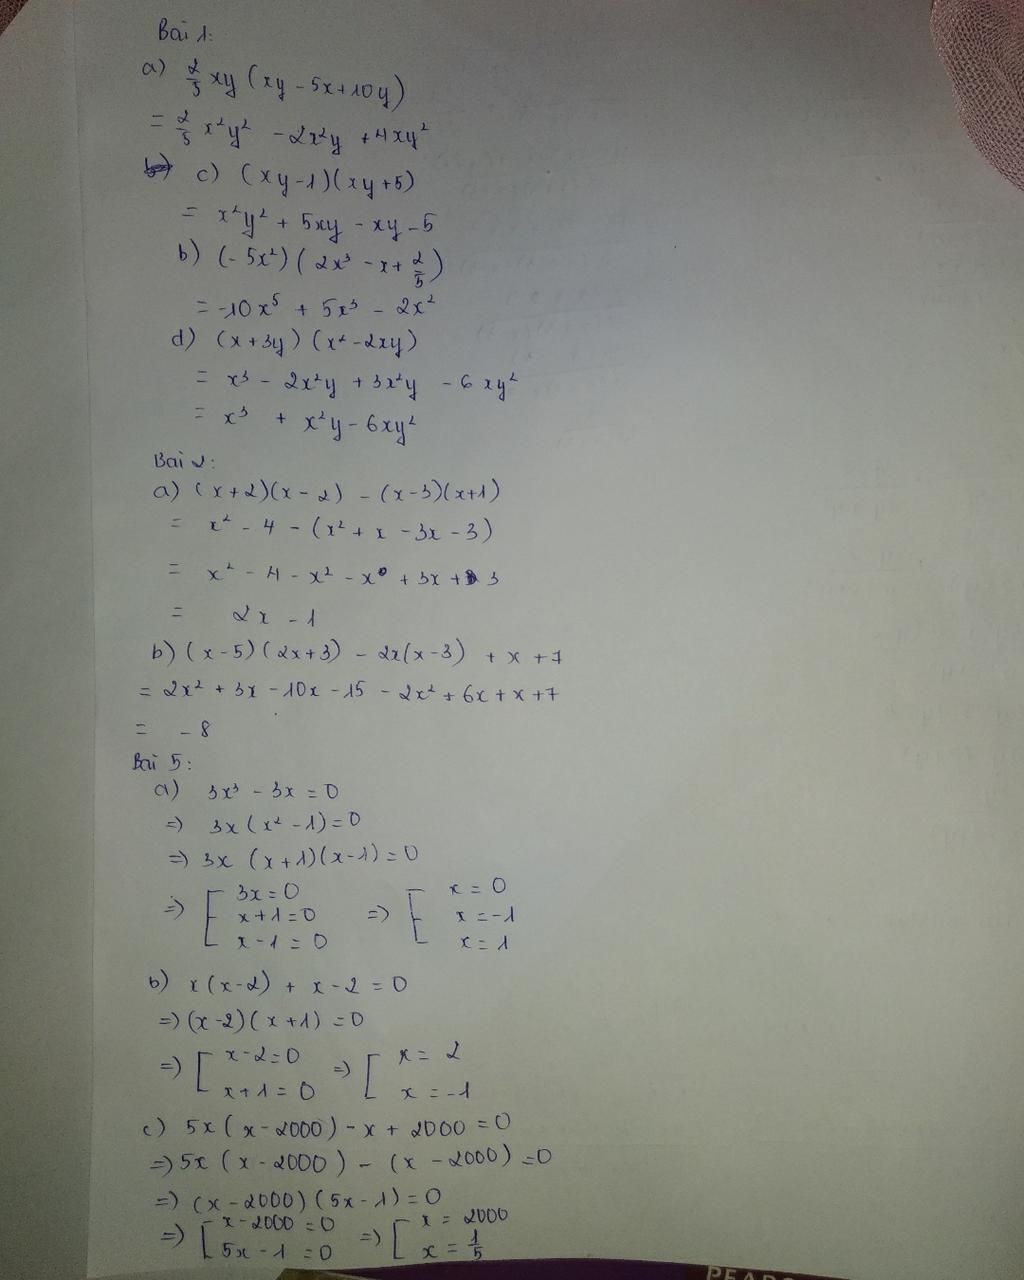 Bài 1:
a) 2/5 xy (xy - 5x + 10y)
= 2/5 x²y² - 2x²y + 4xy²
c) (xy - 1)(xy + 5)
= x²y² + 5xy - xy - 5
b) (- 5x²) (2x³ - x + 2/5)
= -10x⁵ + 5x³ - 2x²
d) (x + 3y) (x² - 2xy)
= x³ - 2x²y + 3x²y - 6xy²
= x³ + x²y - 6xy²
Bài 2:
a) (x + 2)(x - 2) - (x - 3)(x + 1)
= x² - 4 - (x² + x - 3x - 3)
= x² - 4 - x² - x + 3x + 3
= 2x - 1
b) (x - 5)(2x + 3) - 2x(x - 3) + x + 7
= 2x² + 3x - 10x - 15 - 2x² + 6x + x + 7
= - 8
Bài 5:
a) 3x³ - 3x = 0
=> 3x (x² - 1) = 0
=> 3x (x + 1)(x - 1) = 0
=> [ 3x = 0 => [ x = 0
x + 1 = 0 x = -1
x - 1 = 0 x = 1
b) x(x - 2) + x - 2 = 0
=> (x - 2)(x + 1) = 0
=> [ x - 2 = 0 => [ x = 2
x + 1 = 0 x = -1
c) 5x (x - 2000) - x + 2000 = 0
=> 5x (x - 2000) - (x - 2000) = 0
=> (x - 2000)(5x - 1) = 0
=> [ x - 2000 = 0 => [ x = 2000
5x - 1 = 0 x = 1/5